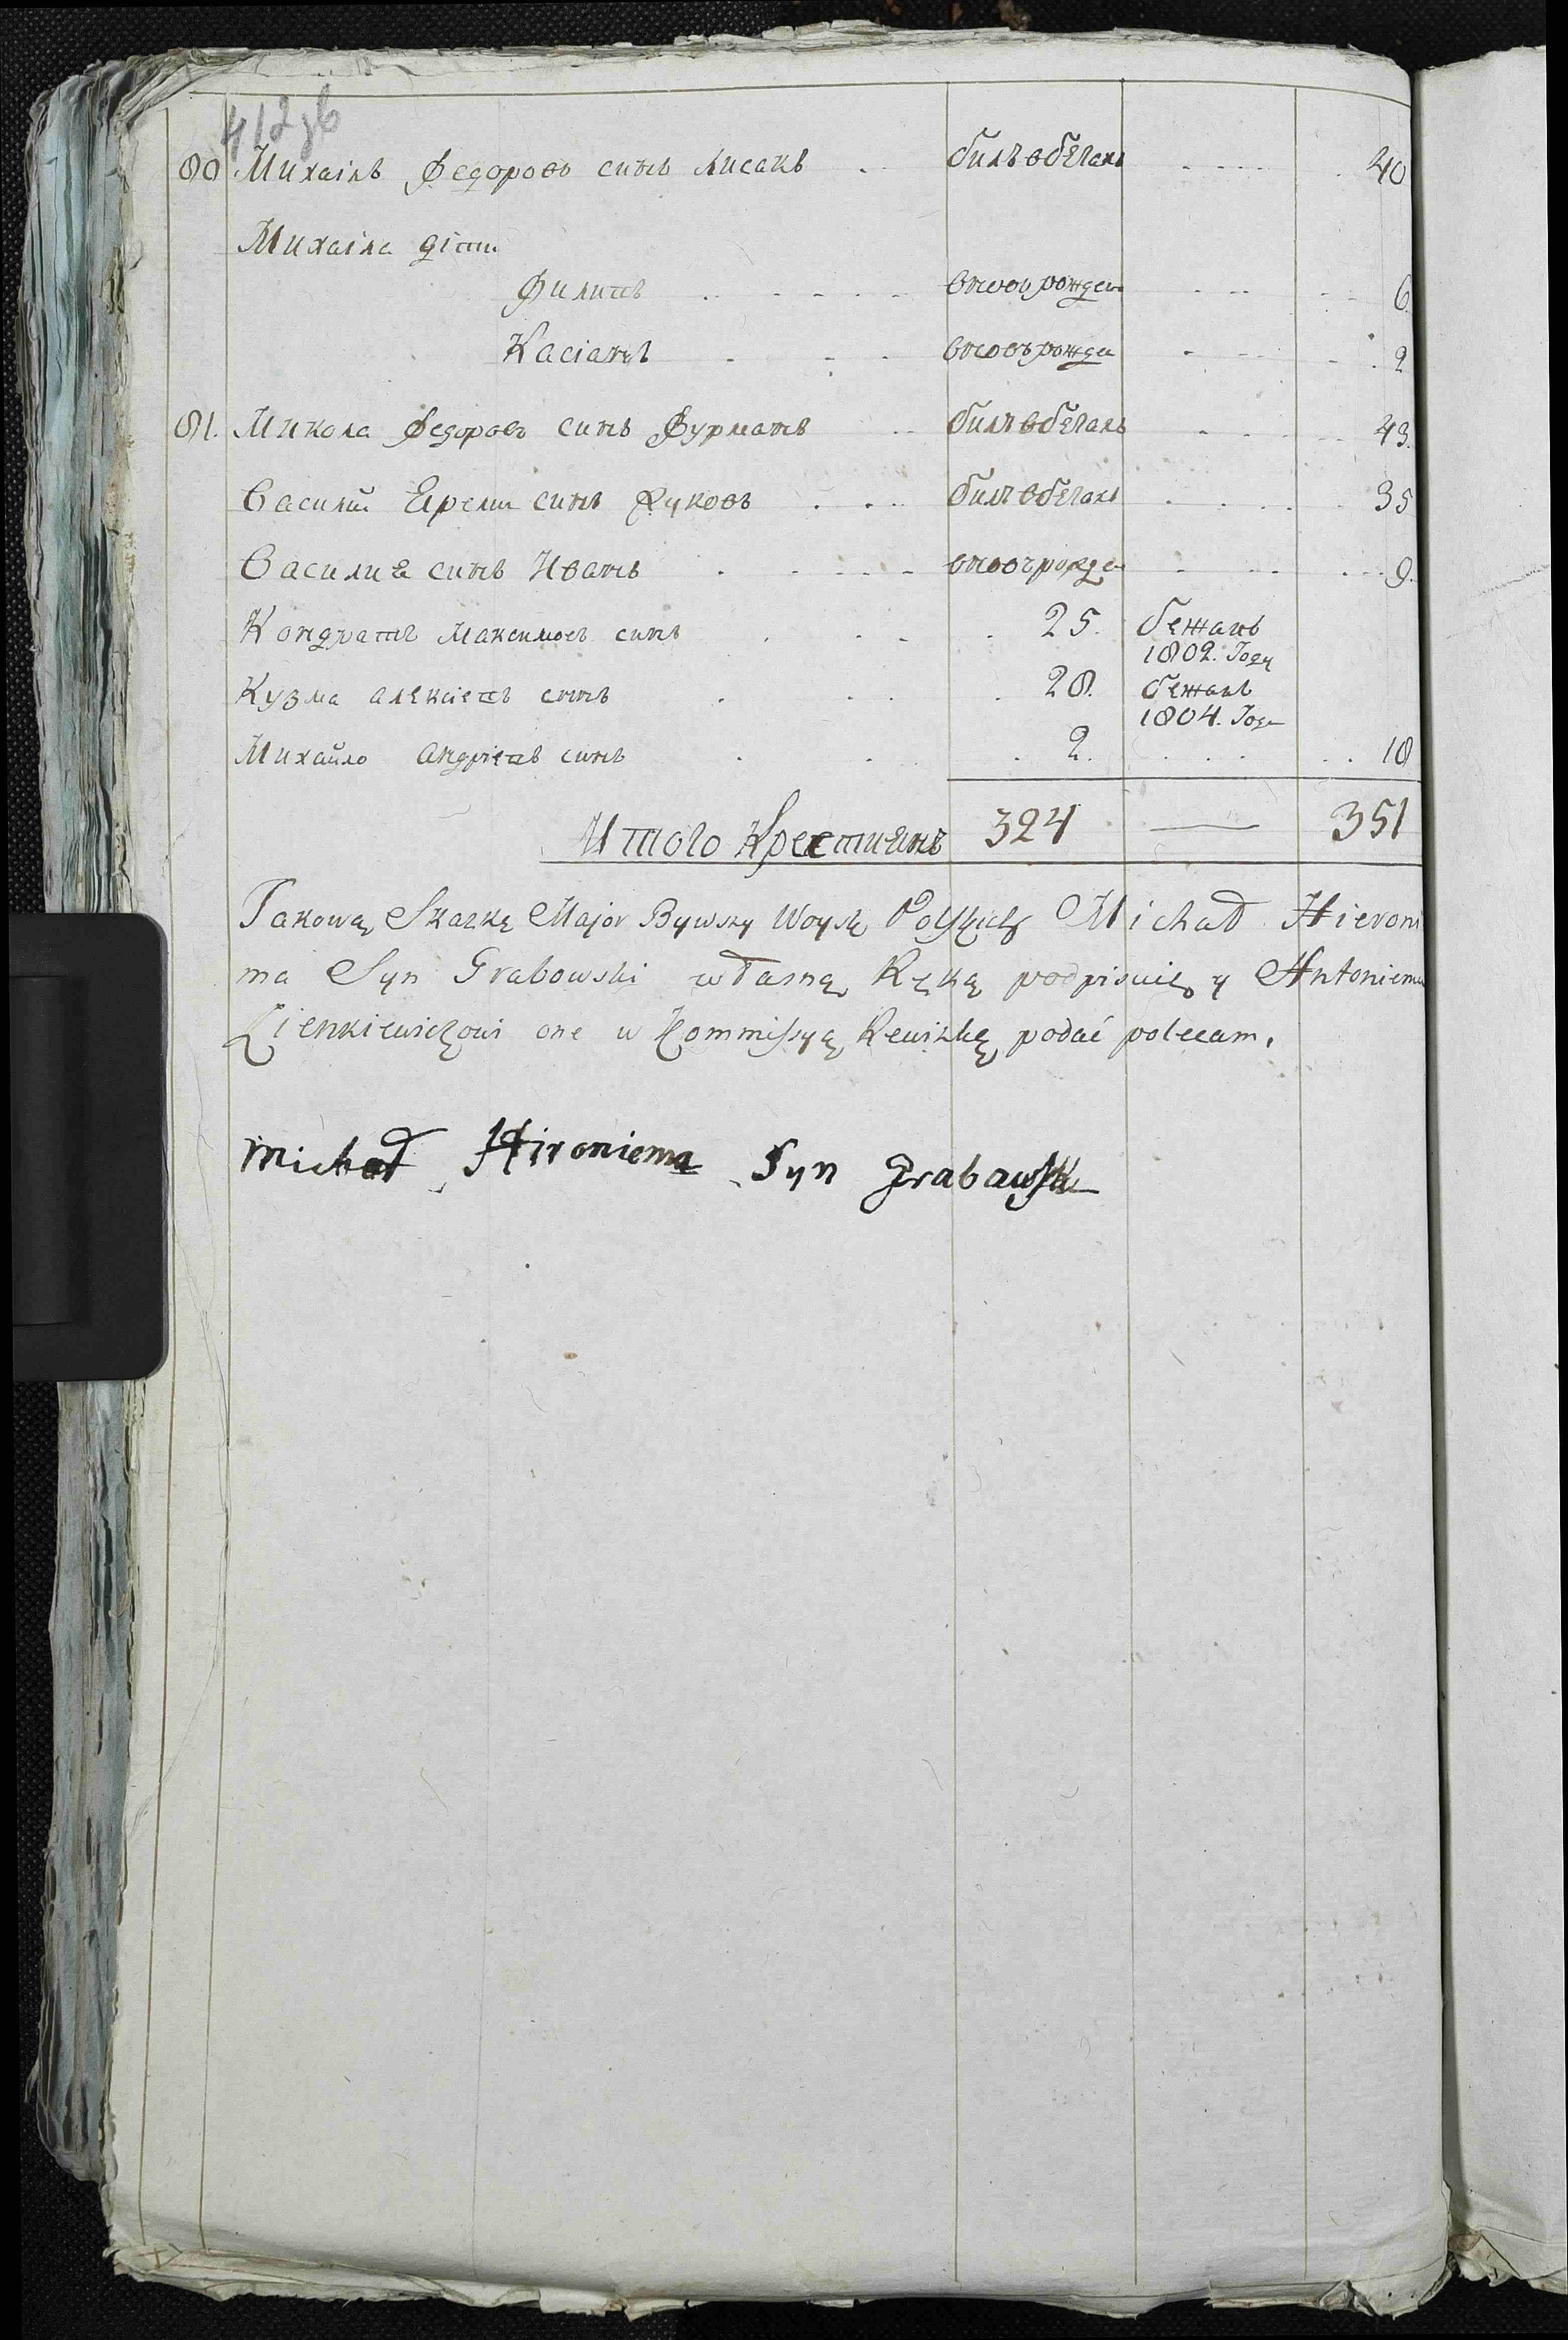 412 зв
80 Михаілъ Федоровъ синъ Лисакъ билъ в бѣгахъ 40
Михаіла діти
Филипъ вновь рожден 6
Касіанъ вновь рожде 2
81. Микола Федоровъ синъ Фурманъ билъ в бѣгахъ 43.
Василий Ярема синъ Жуковъ билъ в бѣгахъ 35
Василия синъ Иванъ вновь рожде 9.
Кондратъ Максимовъ синъ 25. бежалъ 1802. Году
Кузма алексіевъ синъ 28. бежалъ 1804. Года
Михайло андріевъ синъ 2. 18
Итого Крестиянъ 324 — 351
Takową Skazkę Major Bywszy Woysk Polskich Michał Hieroni
ma Syn Grabowski własną Ręką podpisuię y Antoniemu
Zienkiewiczowi one w Kommissyą Rewizką podać polecam.
Michał Hironiema Syn Grabowski